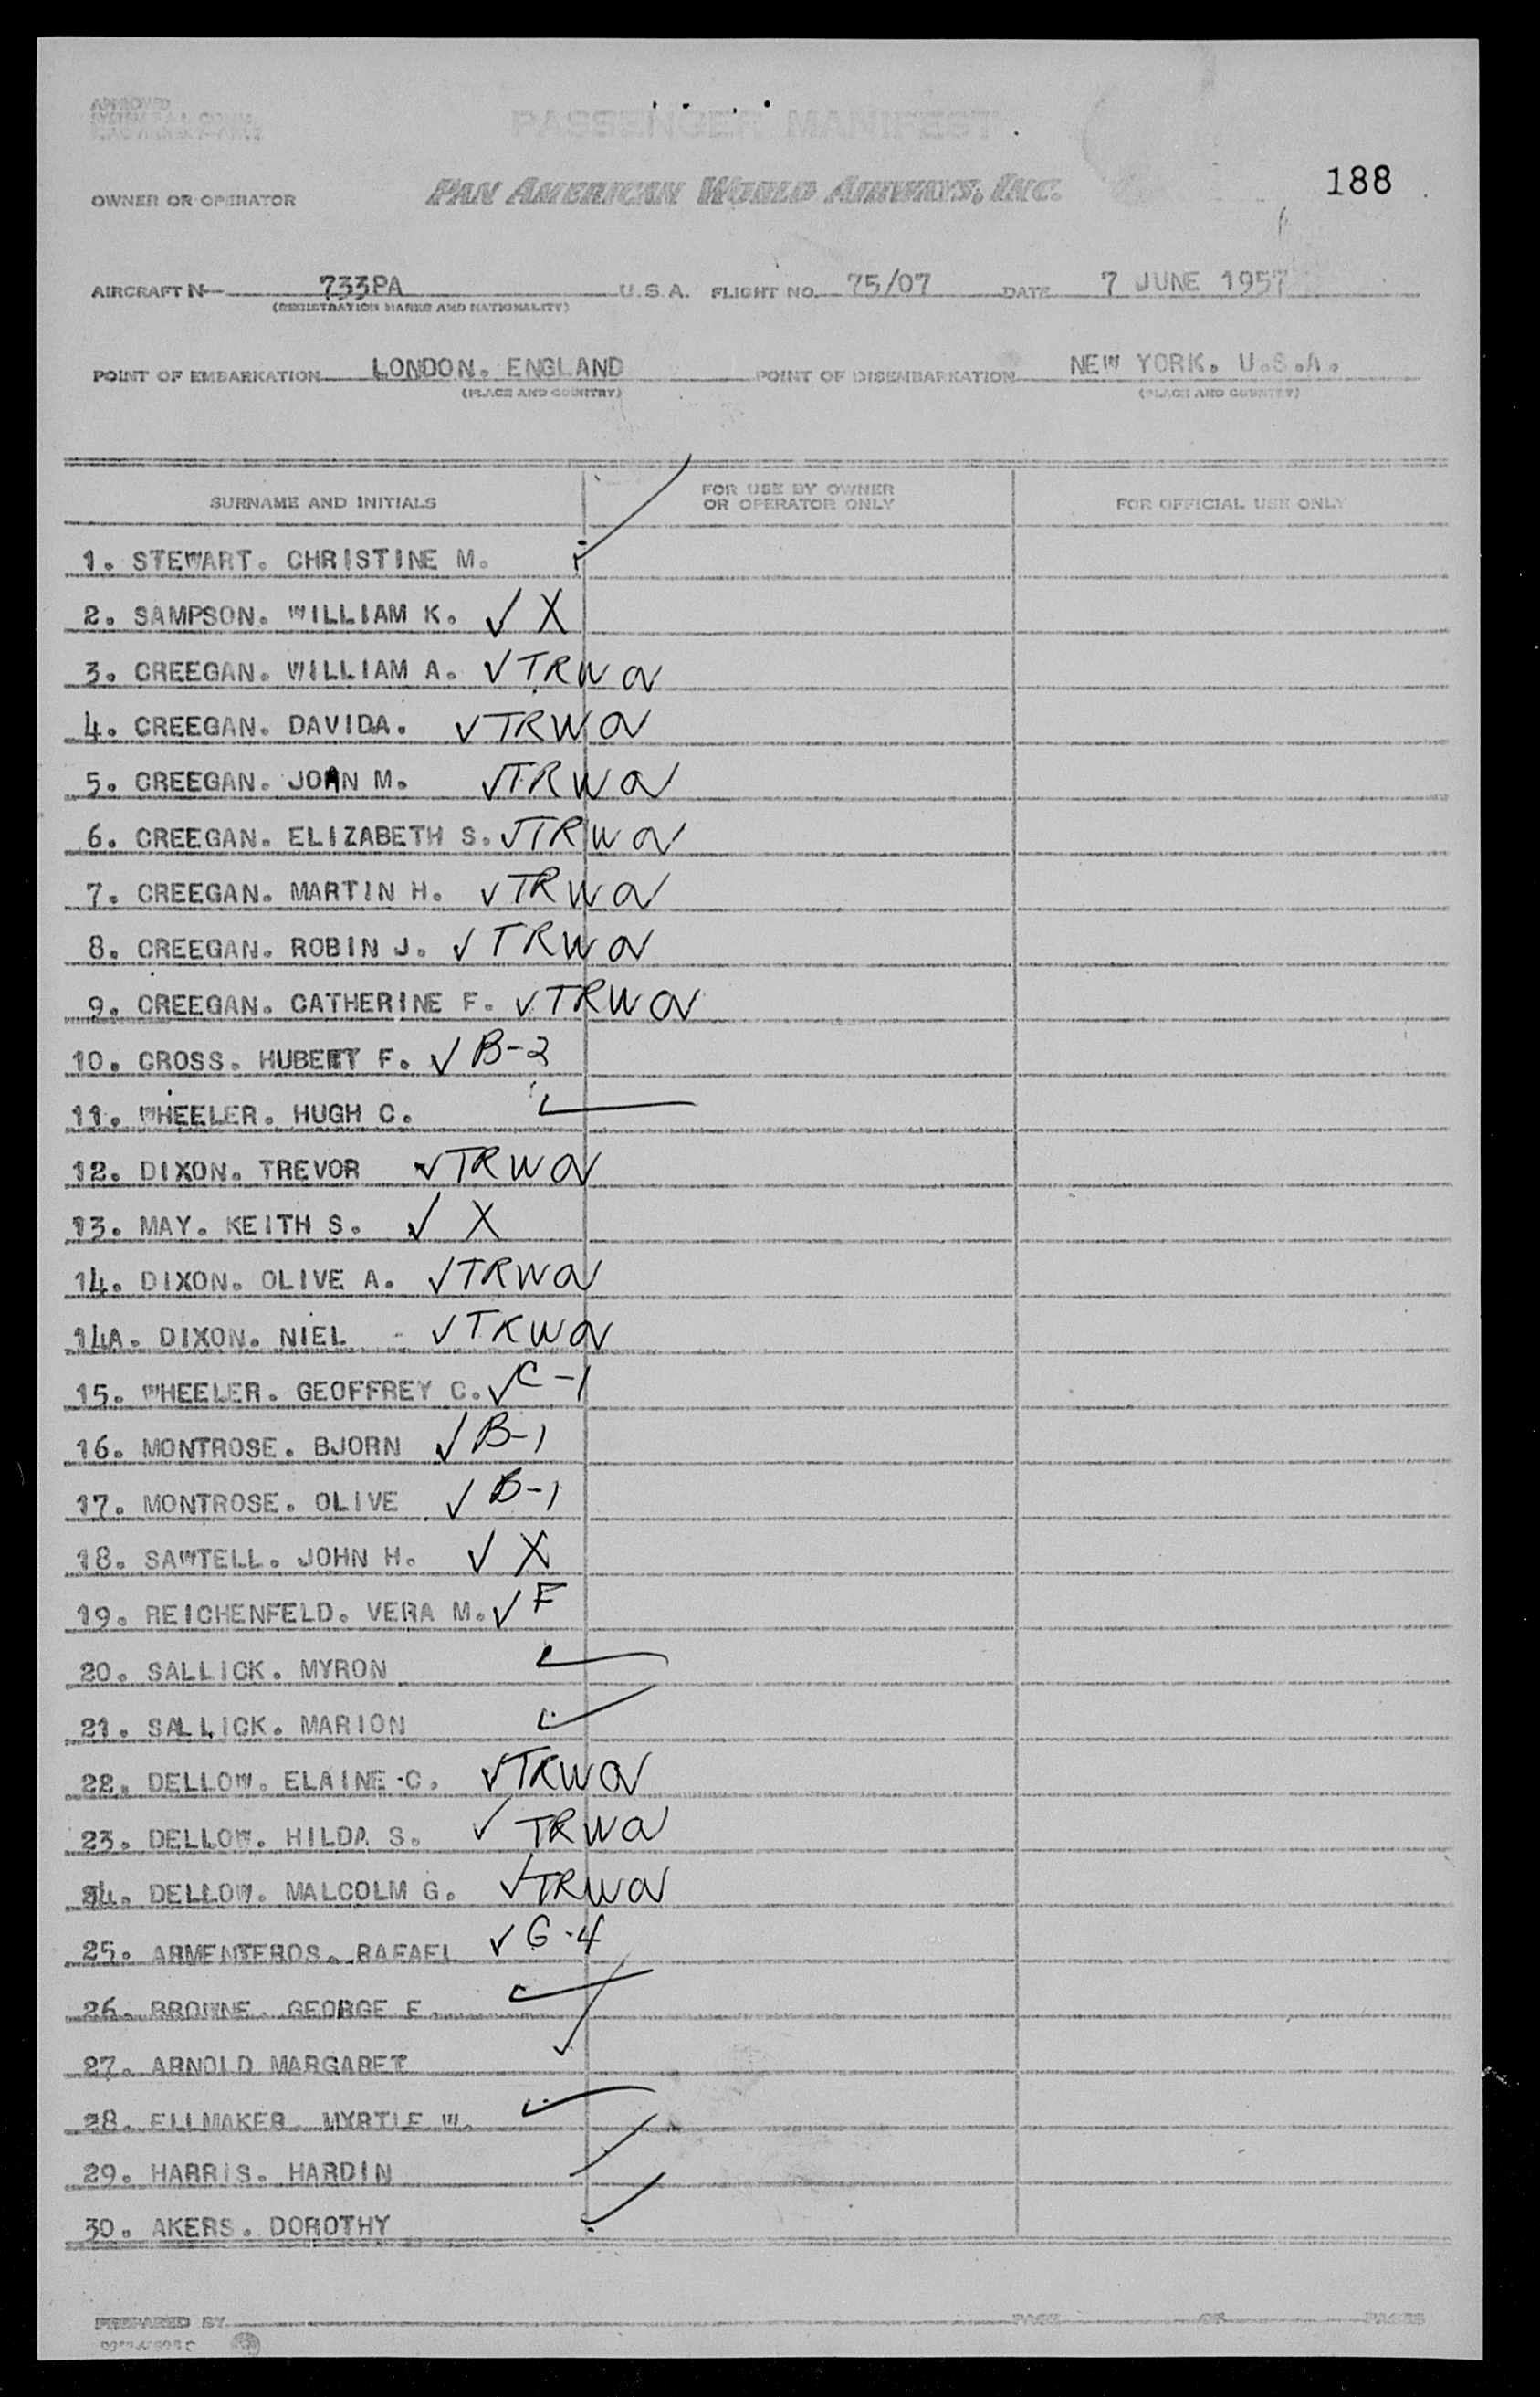 APPROVED
PASSENGER MANIFEST
188
OWNER OR OPERATOR PAN AMERICAN WORLD AIRWAYS, INC.
AIRCRAFT N 733PA U.S.A. FLIGHT NO. 75/07 DATE 7 JUNE 1957
(REGISTRATION MARKS AND NATIONALITY)
POINT OF EMBARKATION LONDON. ENGLAND POINT OF DISEMBARKATION NEW YORK. U.S.A.
(PLACE AND COUNTRY) (PLACE AND COUNTRY)
SURNAME AND INITIALS FOR USE BY OWNER OR OPERATOR ONLY FOR OFFICIAL USE ONLY
1. STEWART. CHRISTINE M. ✓
2. SAMPSON. WILLIAM K. ✓ X
3. CREEGAN. WILLIAM A. ✓ TRWOV
4. CREEGAN. DAVIDA. ✓ TRWOV
5. CREEGAN. JOAN M. ✓ TRWOV
6. CREEGAN. ELIZABETH S. ✓ TRWOV
7. CREEGAN. MARTIN H. ✓ TRWOV
8. CREEGAN. ROBIN J. ✓ TRWOV
9. CREEGAN. CATHERINE F. ✓ TRWOV
10. GROSS. HUBERT F. ✓ B-2
11. WHEELER. HUGH C. ✓
12. DIXON. TREVOR ✓ TRWOV
13. MAY. KEITH S. ✓ X
14. DIXON. OLIVE A. ✓ TRWOV
14A. DIXON. NIEL - ✓ TRWOV
15. WHEELER. GEOFFREY C. ✓ C-1
16. MONTROSE. BJORN ✓ B-1
17. MONTROSE. OLIVE ✓ B-1
18. SAWTELL. JOHN H. ✓ X
19. REICHENFELD. VERA M. ✓ F
20. SALLICK. MYRON ✓
21. SALLICK. MARION ✓
22. DELLOW. ELAINE C. ✓ TRWOV
23. DELLOW. HILDA S. ✓ TRWOV
24. DELLOW. MALCOLM G. ✓ TRWOV
25. ARMENTEROS. RAFAEL ✓ G-4
26. BROWNE. GEORGE E. ✓
27. ARNOLD MARGARET ✓
28. ELLMAKER. MYRTLE W. ✓
29. HARRIS. HARDIN ✓
30. AKERS. DOROTHY ✓
PREPARED BY PAGE OF PAGES